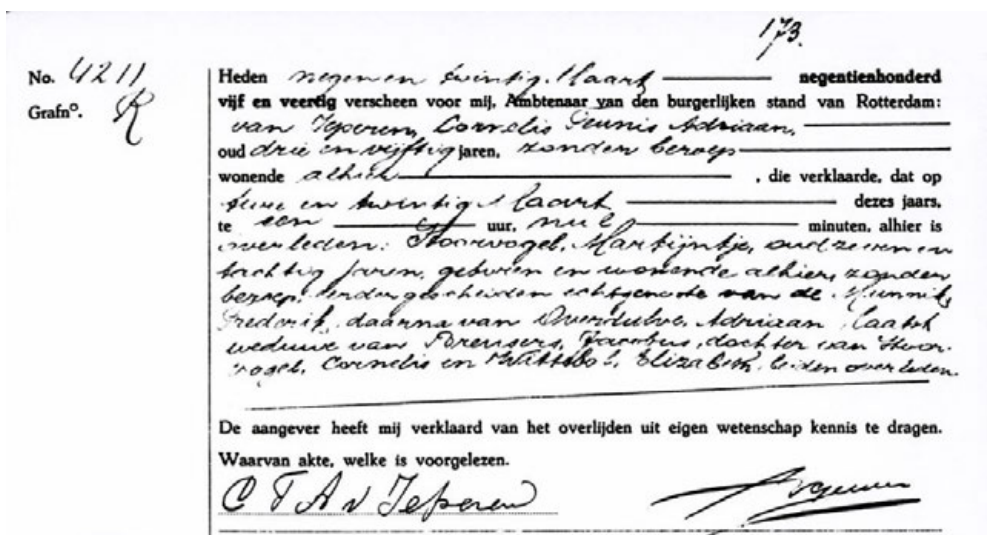 173.
No. 4211
Grafnº. R
Heden negen en twintig Maart negentienhonderd
vijf en veertig verscheen voor mij, Ambtenaar van den burgerlijken stand van Rotterdam:
van Ieperen, Cornelis Teunis Adriaan,
oud drie en vijftig jaren, zonder beroep
wonende alhier, die verklaarde, dat op
twee en twintig Maart dezes jaars,
te een uur, nul minuten, alhier is
overleden: Hoorvogel, Martijntje, oud zeven en
tachtig jaren, geboren en wonende alhier, zonder
beroep, eerder gescheiden echtgenote van de Munnik,
Frederik, daarna van Overdulve, Adriaan, laatst
weduwe van, Jacobus, dochter van Hoor-
vogel, Cornelis en, Elizabeth, beiden overleden.
De aangever heeft mij verklaard van het overlijden uit eigen wetenschap kennis te dragen.
Waarvan akte, welke is voorgelezen.
C T A v Ieperen